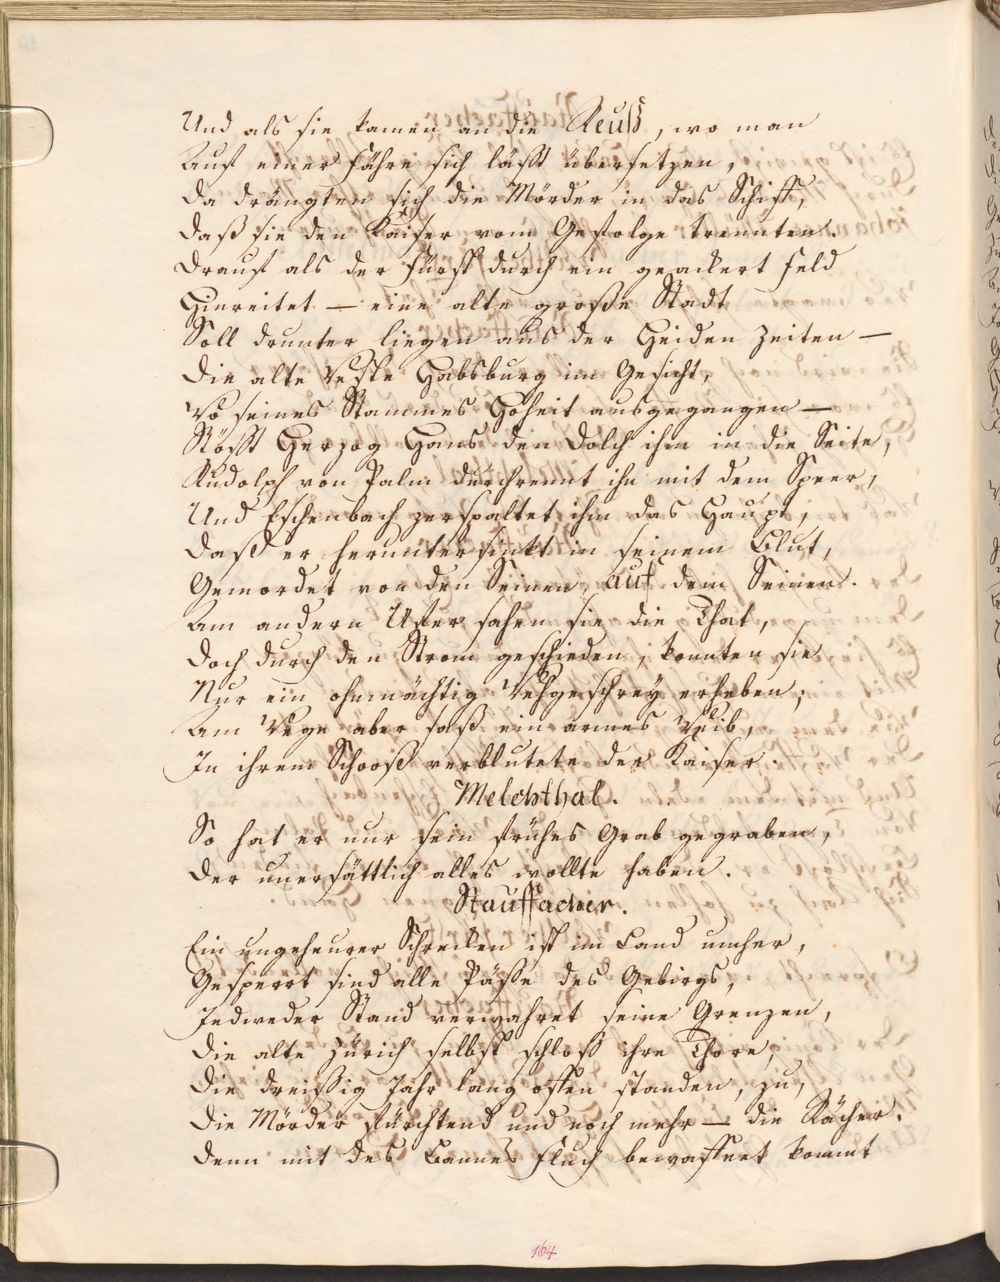 Und als sie kamen an die Reuß, wo man
Auf einer Fähre sich läßt übersetzen,
Da drängten sich die Mörder in das Schiff,
Daß sie den Kaiser vom Gefolge trennten.
Drauf als der Fürst durch ein geackert Feld
Hinreitet — eine alte große Stadt
Soll drunter liegen aus der Heiden Zeiten —
Die alte Veste Habsburg im Gesicht,
Wo seines Stammes Hoheit ausgegangen —
Stößt Herzog Hans den Dolch ihm in die Seite,
Rudolph von Palm durchrennt ihn mit dem Speer,
Und Eschenbach zerspaltet ihm das Haupt,
Daß er heruntersinkt in seinem Blut,
Gemordet von den Seinen, auf dem Seinen.
Am andern Ufer sahen sie die That,
Doch durch den Strom geschieden, konnten sie
Nur ein ohnmächtig Wehgeschrey erheben;
Am Wege aber saß ein armes Weib,
In ihrem Schooß verblutete der Kaiser.
Melchthal.
So hat er nur sein frühes Grab gegraben,
Der unersättlich alles wollte haben.
Stauffacher.
Ein ungeheurer Schrecken ist im Land umher,
Gesperrt sind alle Pässe des Gebirgs,
Jedweder Stand verwahret seine Grenzen,
Die alte Zürich selbst schloß ihre Thore,
Die dreissig Jahr lang offen standen, zu,
Die Mörder fürchtend und noch mehr — die Rächer.
Denn mit des Bannes Fluch bewaffnet kommt
164